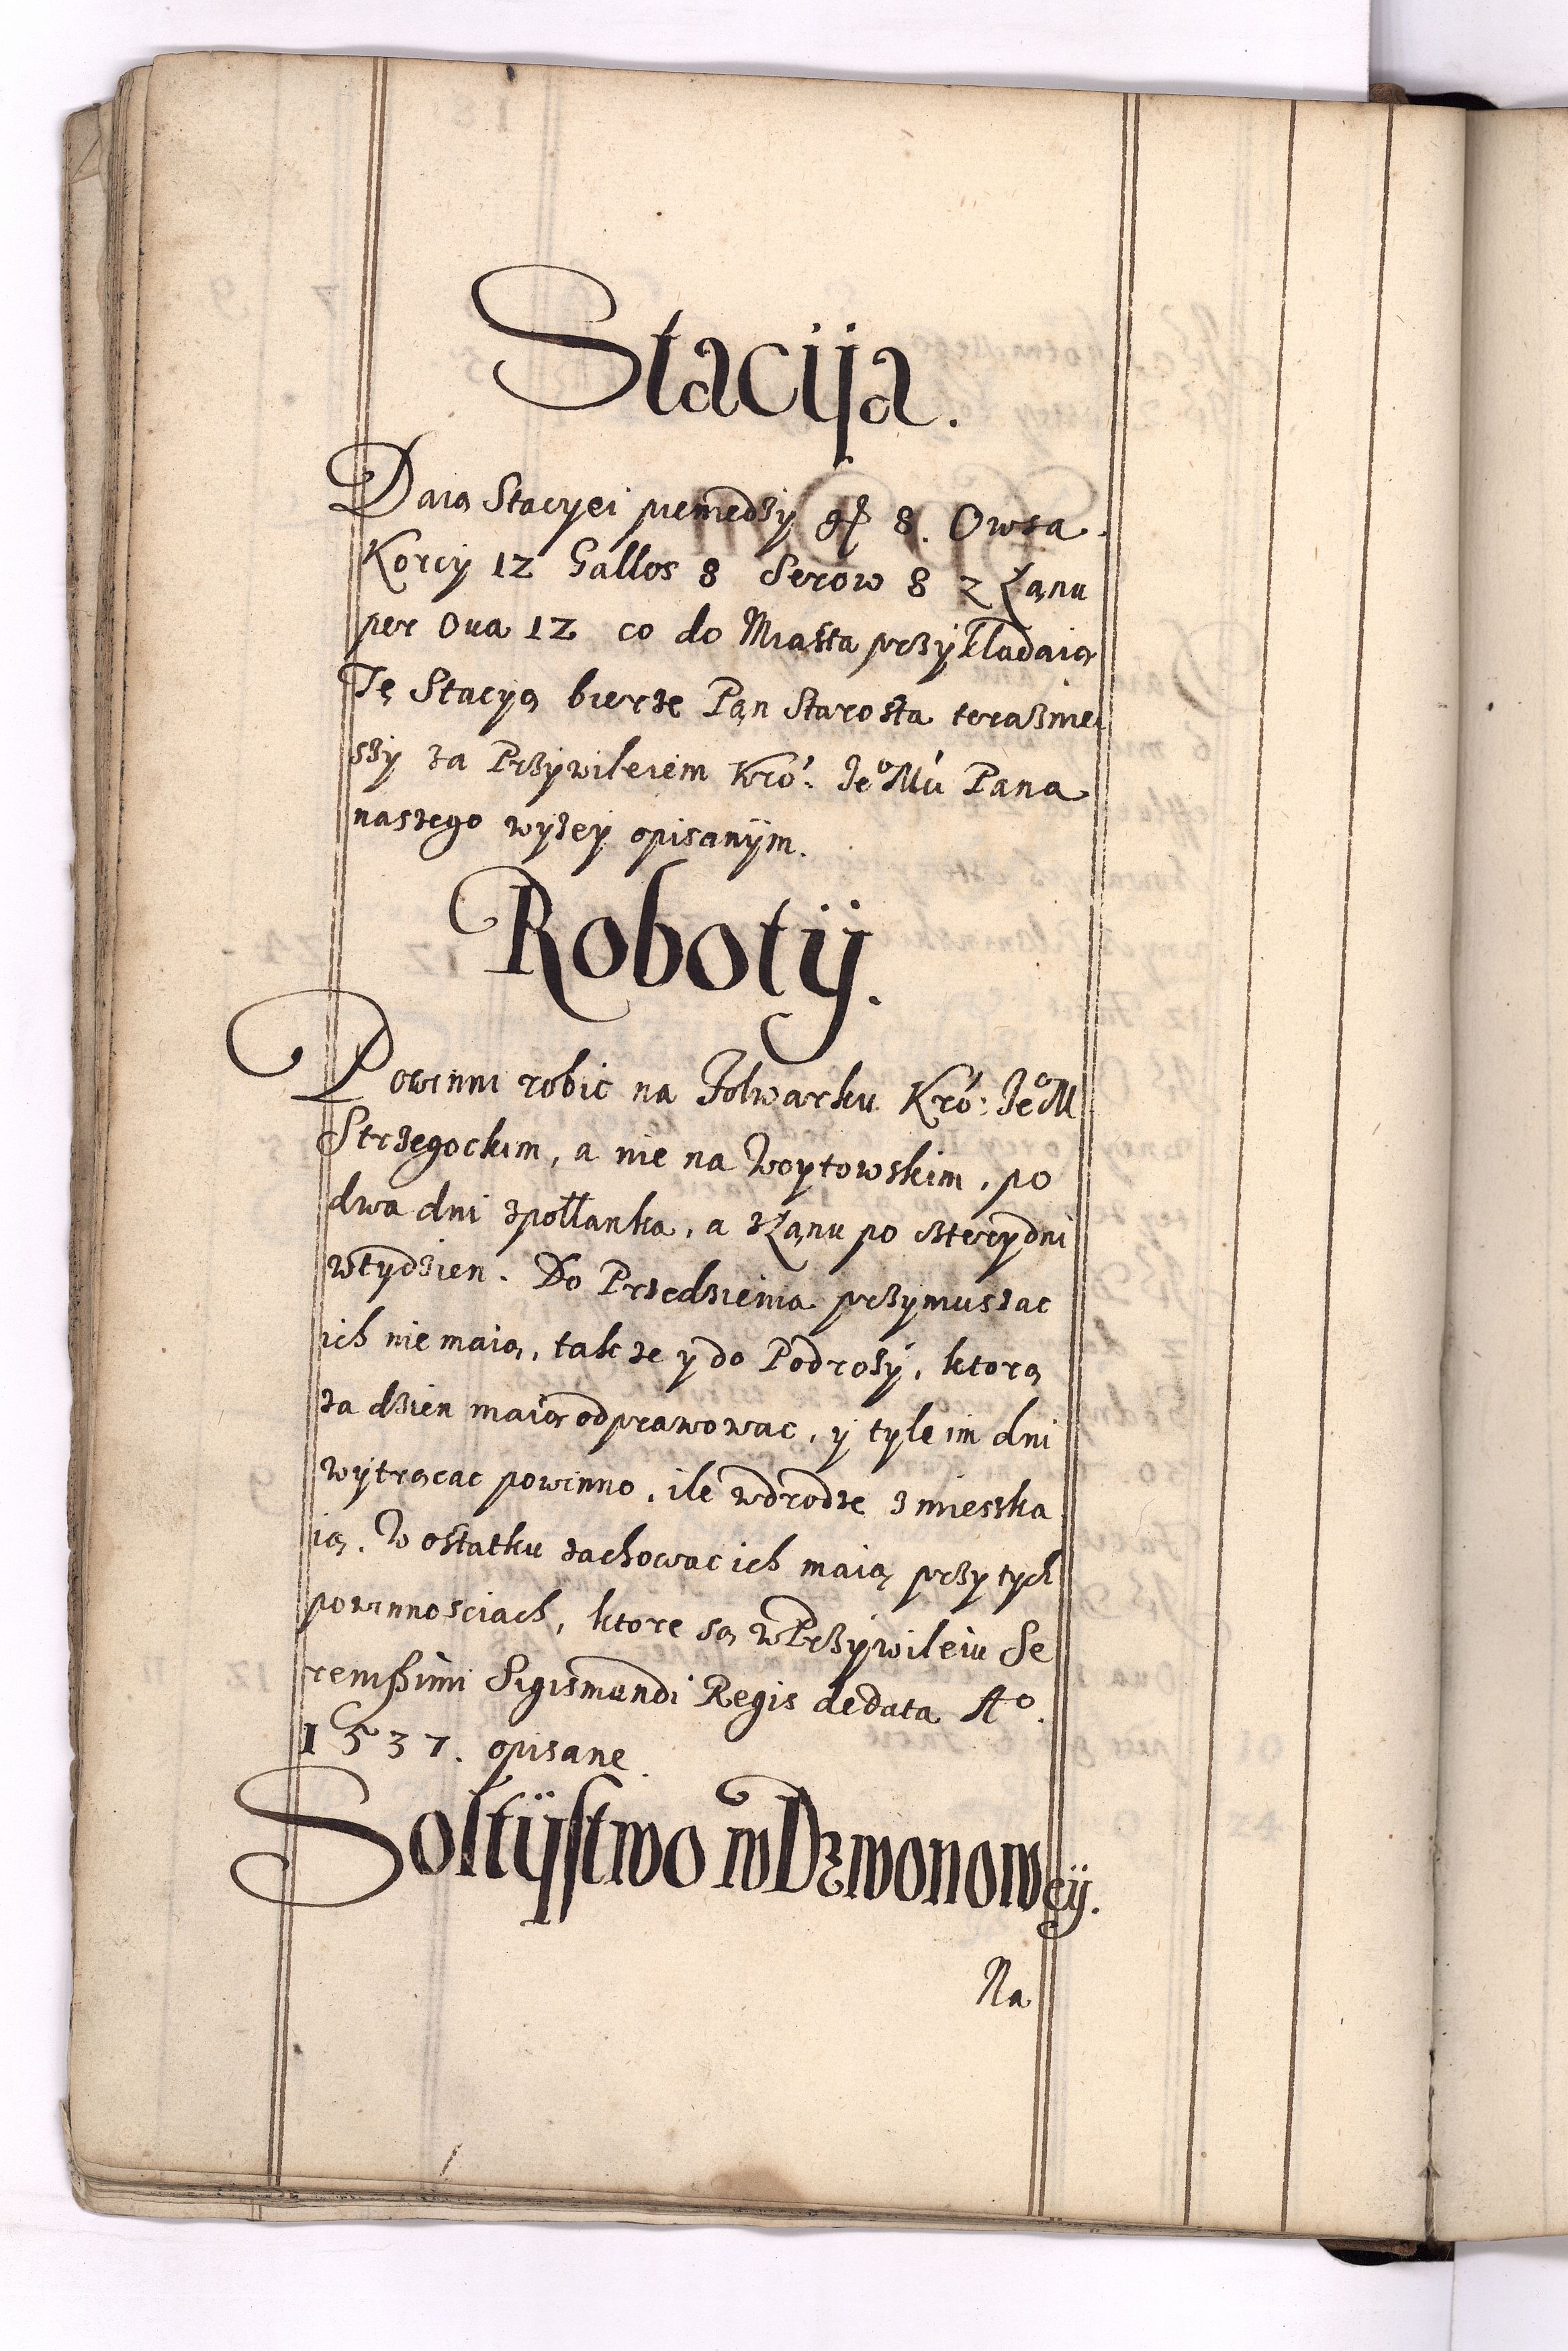 Stacija.
Daią Stacyei pieniędzy gł 8. Owsa
Korcy 12 Gallos 8 Serow 8 z Łanu
per Oua 12 co do Miasta przykładaią
Tę Stacyą bierze Pan Starosta terazniei
szy za Przywileiem Kró: JeoMú Pana
naszego wyżey opisanym.
Robotÿ.
Powinni robic na Folwarku Kró: JeoM
Strzegockim, a nie na Woytowskim, po
dwa dni zpołłanka, a zŁanu po cztery dni
wtydzien. Do Przedzienia przymuszac
ich nie maią, takze y do Podrozy, ktorą
za dzien maią odprawowac, y tyle im dni
wytrącac powinno, ile wdrodze zmieszka
ią. W ostatku zachowac ich maią przy tych
powinnosciach, ktore są wPrzywileiu Se
renissimi Sigismundi Regis dedata Ao.
1537. opisane.
Sołtÿstwo w Dzwonowcÿ.
Na